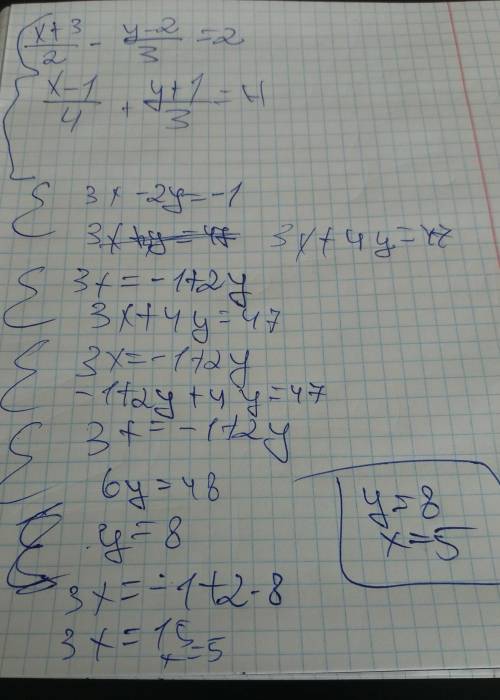 { (x+3)/2 - (y-2)/3 = 2
(x-1)/4 + (y+1)/3 = 4
{ 3x - 2y = -1
3x+4y=47 3x+4y=47
{ 3x = -1+2y
3x+4y=47
{ 3x=-1+2y
-1+2y+4y=47
{ 3x=-1+2y
6y=48
y=8
3x=-1+2·8
3x=15
x=5
y=8
x=5